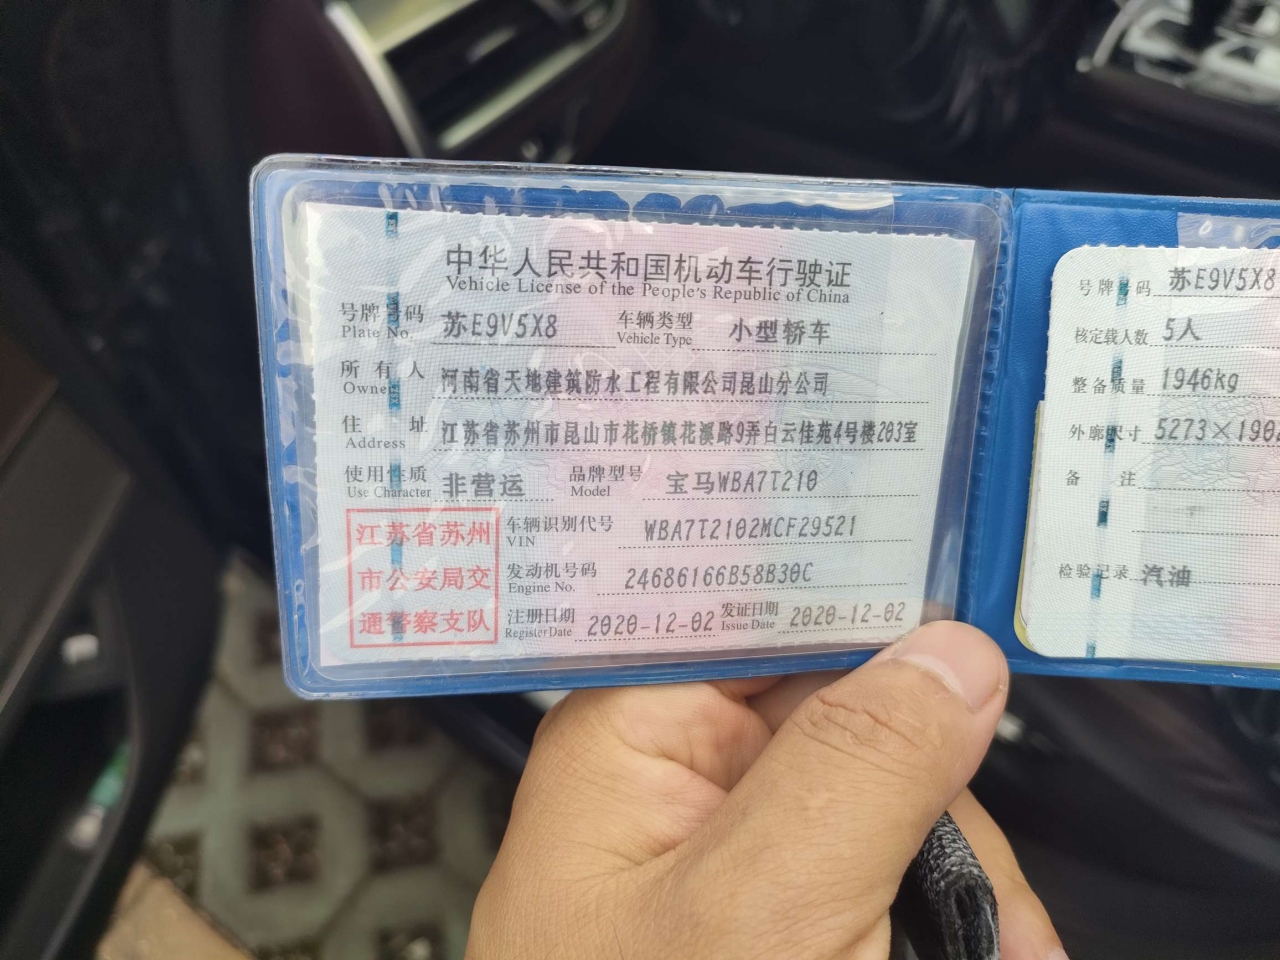 中华人民共和国机动车行驶证
Vehicle License of the People's Republic of China
号牌号码 苏E9V5X8 车辆类型 小型轿车
Plate No. Vehicle Type
所有人 河南省天地建筑防水工程有限公司昆山分公司
Owner
住址 江苏省苏州市昆山市花桥镇花溪路9弄白云佳苑4号楼203室
Address
使用性质 非营运 品牌型号 宝马WBA7T210
Use Character Model
江苏省苏州
市公安局交
通警察支队
车辆识别代号 WBA7T2102MCF29521
VIN
发动机号码 24686166B58B30C
Engine No.
注册日期 2020-12-02 发证日期 2020-12-02
Register Date Issue Date
号牌号码 苏E9V5X8
核定载人数 5人
整备质量 1946kg
外廓尺寸 5273×190
备注
检验记录 汽油